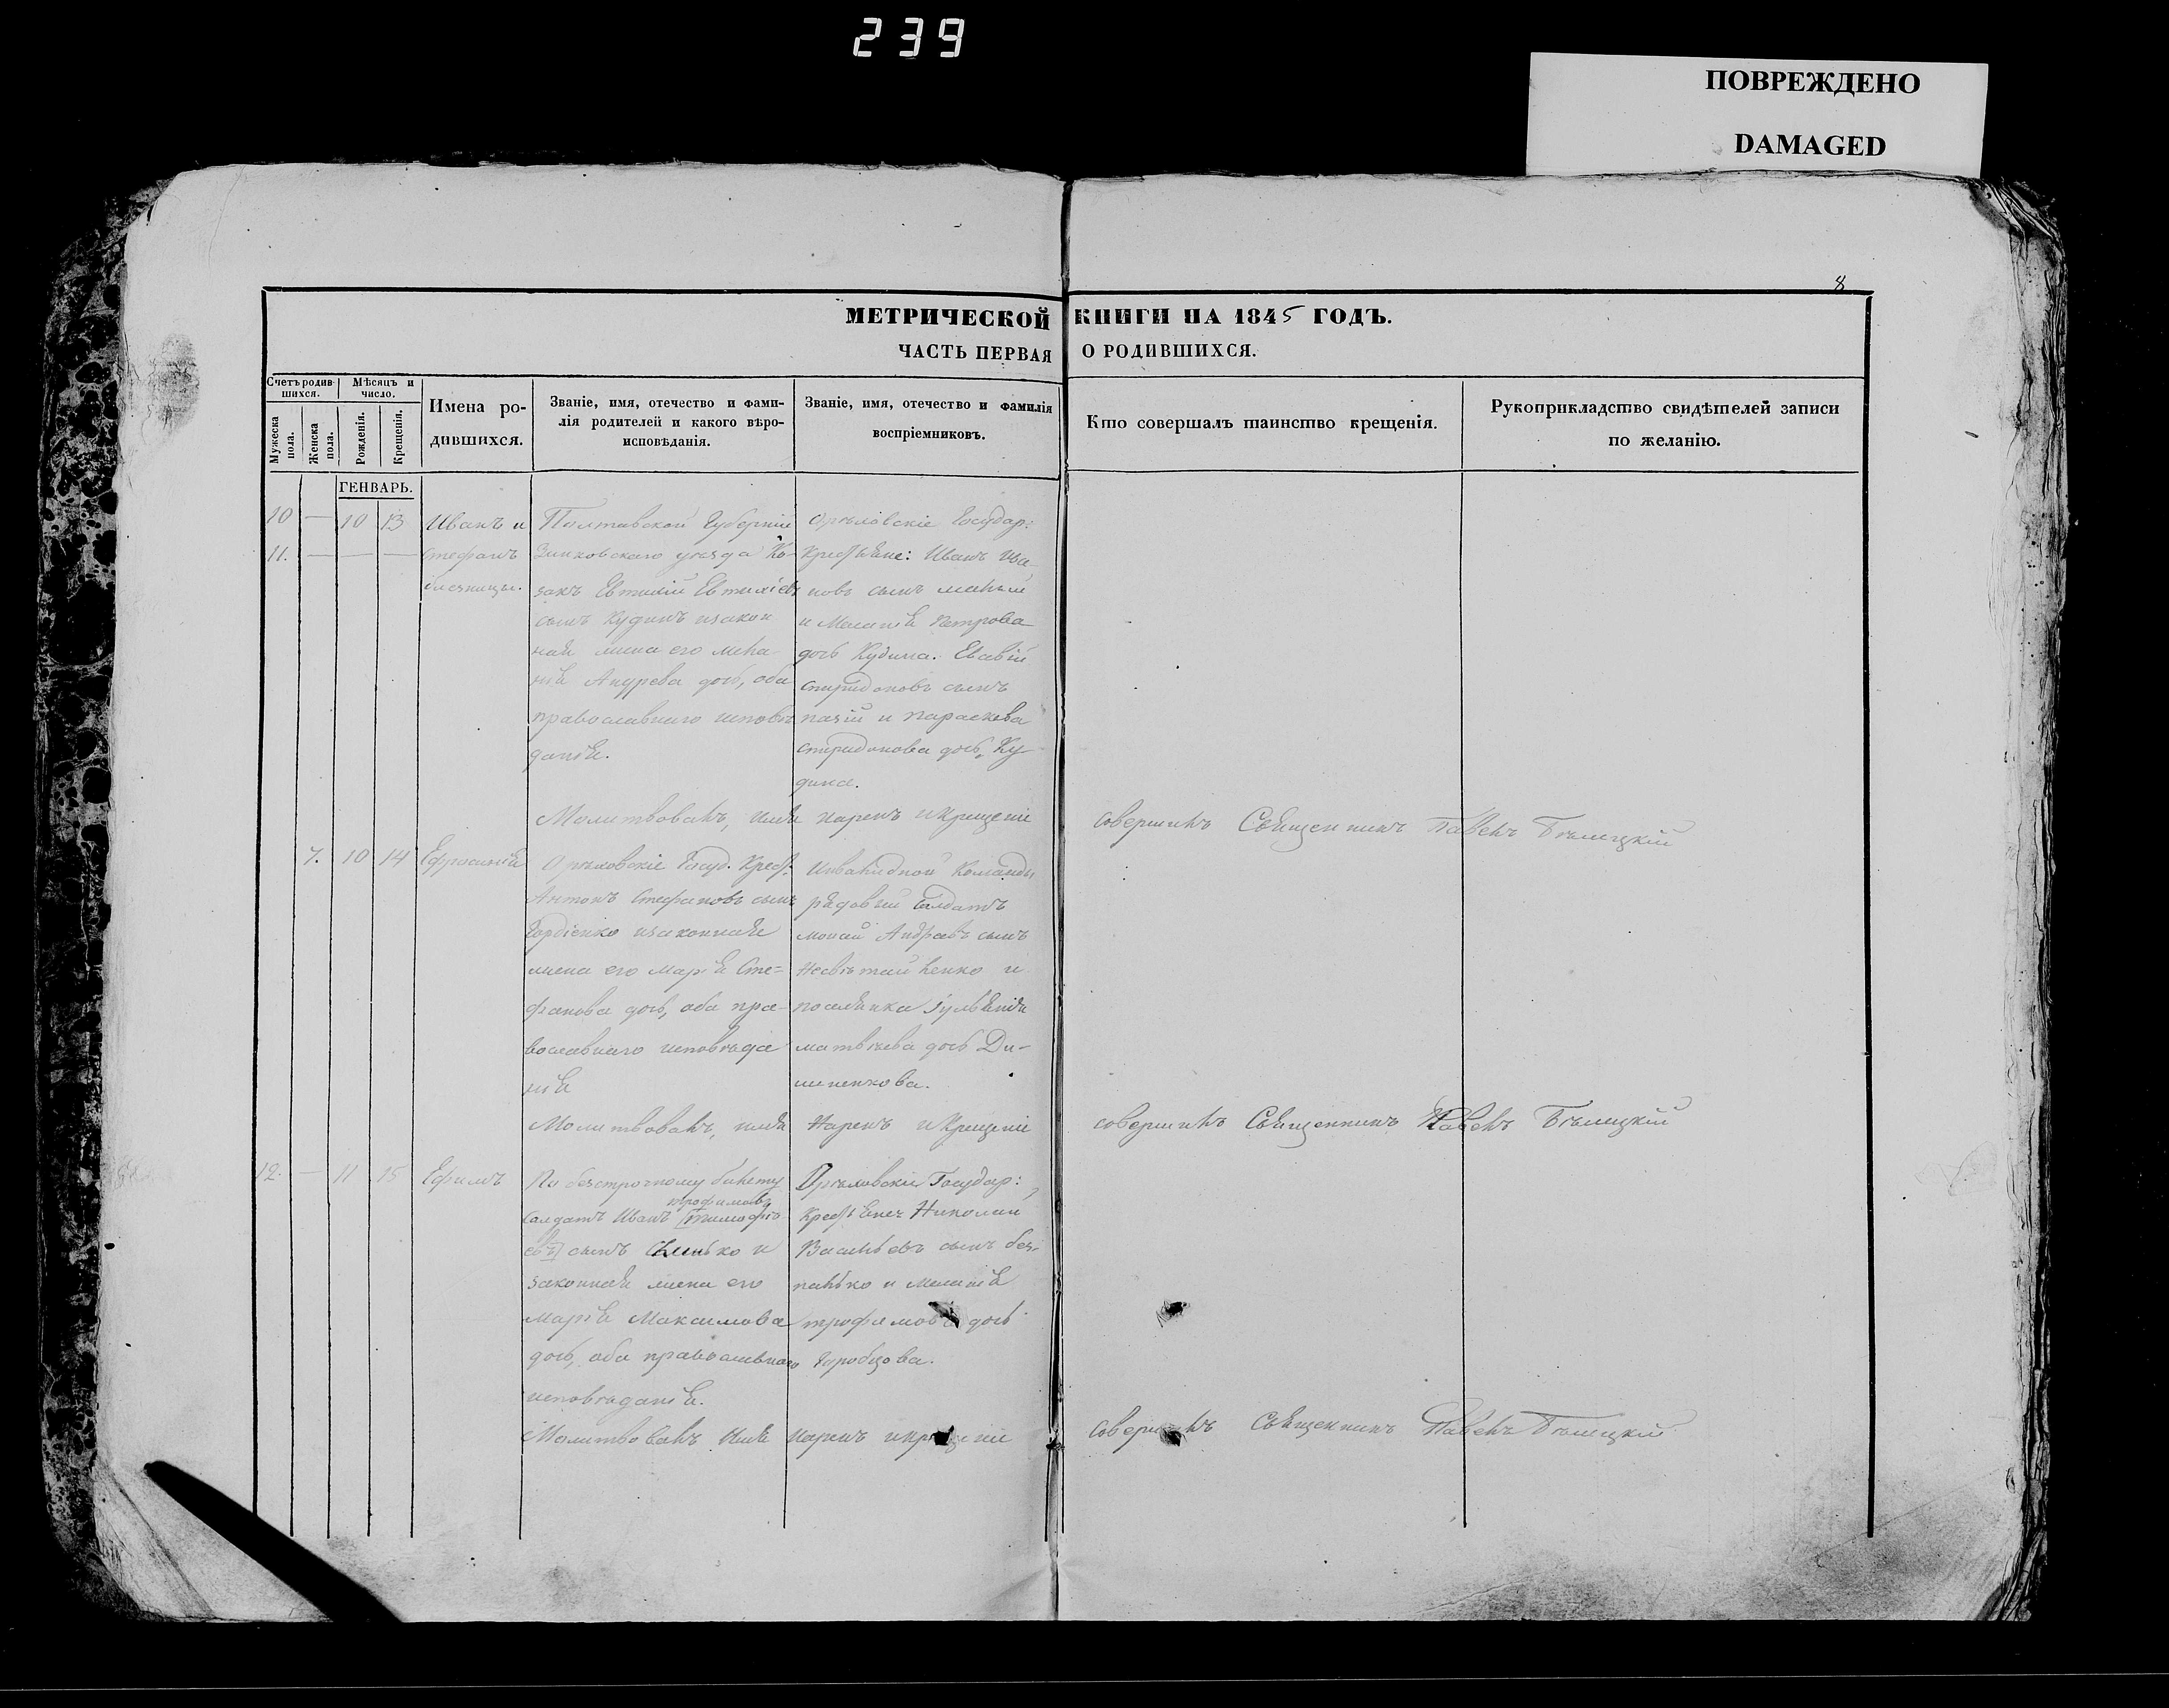 239
ПОВРЕЖДЕНО
DAMAGED
8
МЕТРИЧЕСКОЙ КНИГИ НА 1845 ГОДЪ.
ЧАСТЬ ПЕРВАЯ О РОДИВШИХСЯ.
Счетъ родив-
шихся.
Мѣсяцъ и
число.
Мужеска
пола.
Женска
пола.
Рожденія.
Крещенія.
Имена ро-
дившихся.
Званіе, имя, отечество и фами-
лія родителей и какого вѣро-
исповѣданія.
Званіе, имя, отечество и фамилія
воспріемниковъ.
Кто совершалъ таинство крещенія.
Рукоприкладство свидѣтелей записи
по желанію.
ГЕНВАРЬ.
10 — 10 13 Иванъ и
11. — — — Стефанъ
близнецы.
Полтавской Губерніи
Зинковского уезда Ко-
закъ Евтихій Евтихіевъ
сынъ Кудинъ изакон
ная жена его
дочь, оба
православнаго исповѣ
данія.
Государ:
Крестьяне: Иванъ Ива
новъ сынъ
и Меланія Петрова
дочь Кудина.
Спиридоновъ сынъ
и Параскева
Спиридонова дочь, Ку
дина.
Молитвовалъ, имя нарекъ и Крещеніе
совершилъ Священникъ Павелъ Бѣлецкій
7. 10 14 Ефросинія
Госуд. Крест:
Антонъ Стефановъ сынъ
Гордіенко изаконная
жена его Марія Сте=
фанова дочь, оба пра-
вославнаго исповѣда
нія
Инвалидной Команды
рядовый солдатъ
сынъ
и
Матвѣева дочь
Молитвовалъ, имя Нарекъ и Крещеніе
совершилъ Священникъ Павелъ Бѣлецкій
12. — 11 15 Ефимъ
По безсрочному билету
Трофимовъ
Солдатъ Иванъ [Тимофѣ
евъ] сынъ и
законная жена его
Марія Максимова
дочь, оба православнаго
исповѣданія.
Государ:
Крестьяне: Николай
Васильевъ сынъ без-
палько и Меланія
Трофимова дочь
Горобцова.
Молитвовалъ Имя Нарекъ и крещеніе
Совершилъ Священникъ Павелъ Бѣлецкій